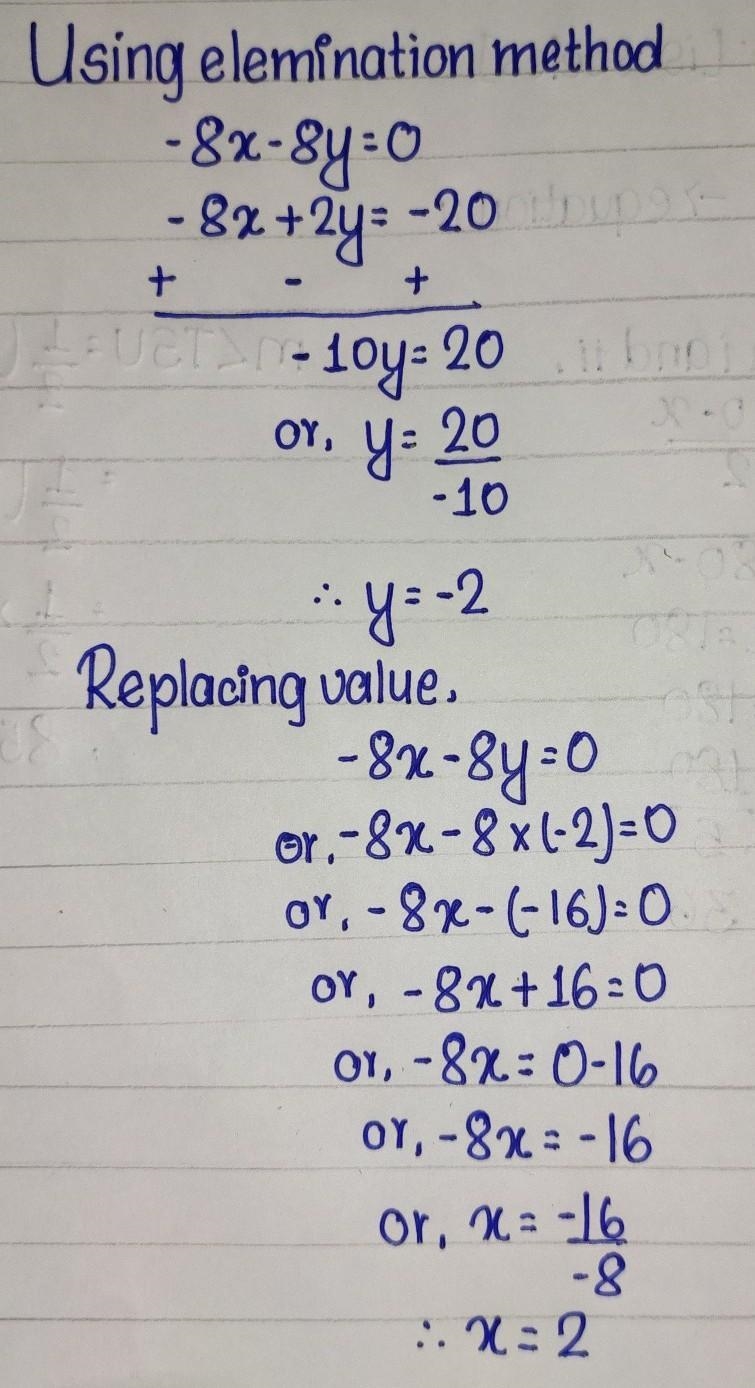 Using elemination method
-8x-8y=0
-8x+2y=-20
+ - +
-10y=20
or, y=20/-10
∴ y=-2
Replacing value,
-8x-8y=0
or,-8x-8×(-2)=0
or,-8x-(-16)=0
or, -8x+16=0
or, -8x=0-16
or,-8x=-16
or, x=-16/-8
∴ x=2